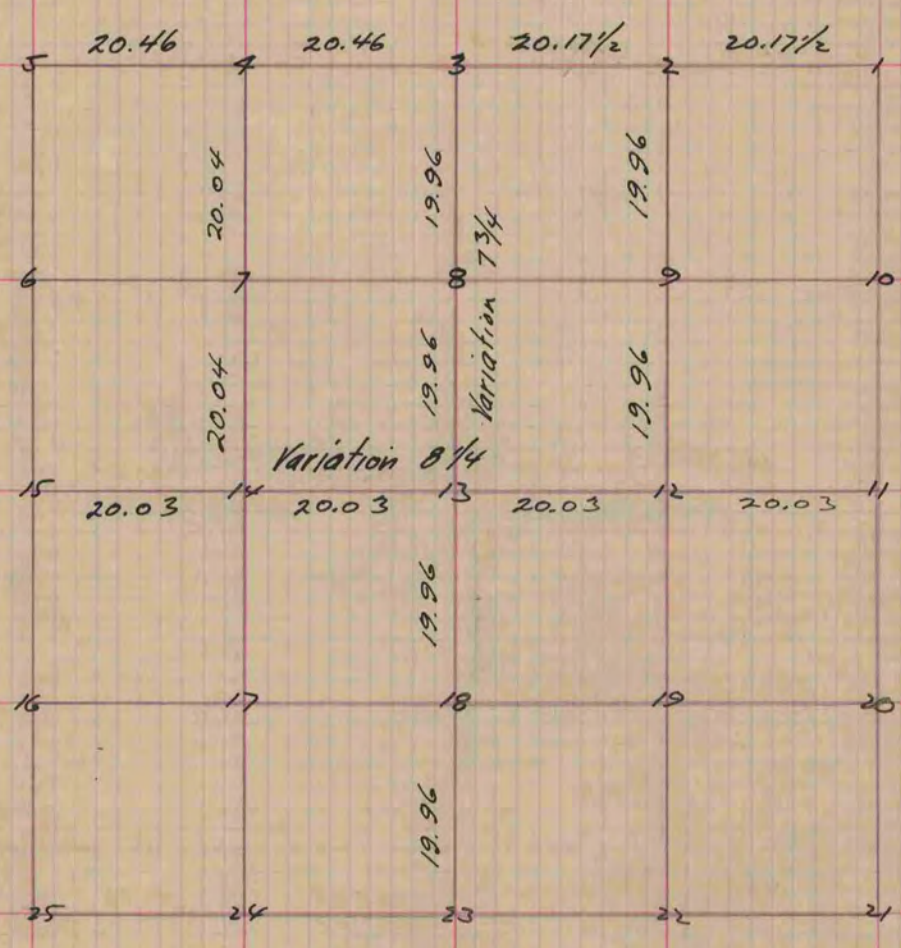 20.46 20.46 20.17 1/2 20.17 1/2
5 4 3 2 1
20.04 19.96 19.96
6 7 8 9 10
Variation 7 3/4
20.04 19.96 19.96
Variation 8 1/4
15 14 13 12 11
20.03 20.03 20.03 20.03
19.96
16 17 18 19 20
19.96
25 24 23 22 21